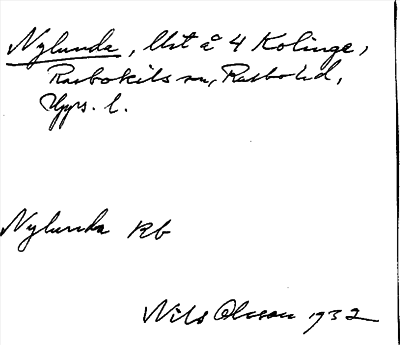 Nylunda, llst å 4 Kolinge,
Rasbokils sn, Rasbo hd,
Upps. l.
Nylunda Rb
Nils Olsson 1932